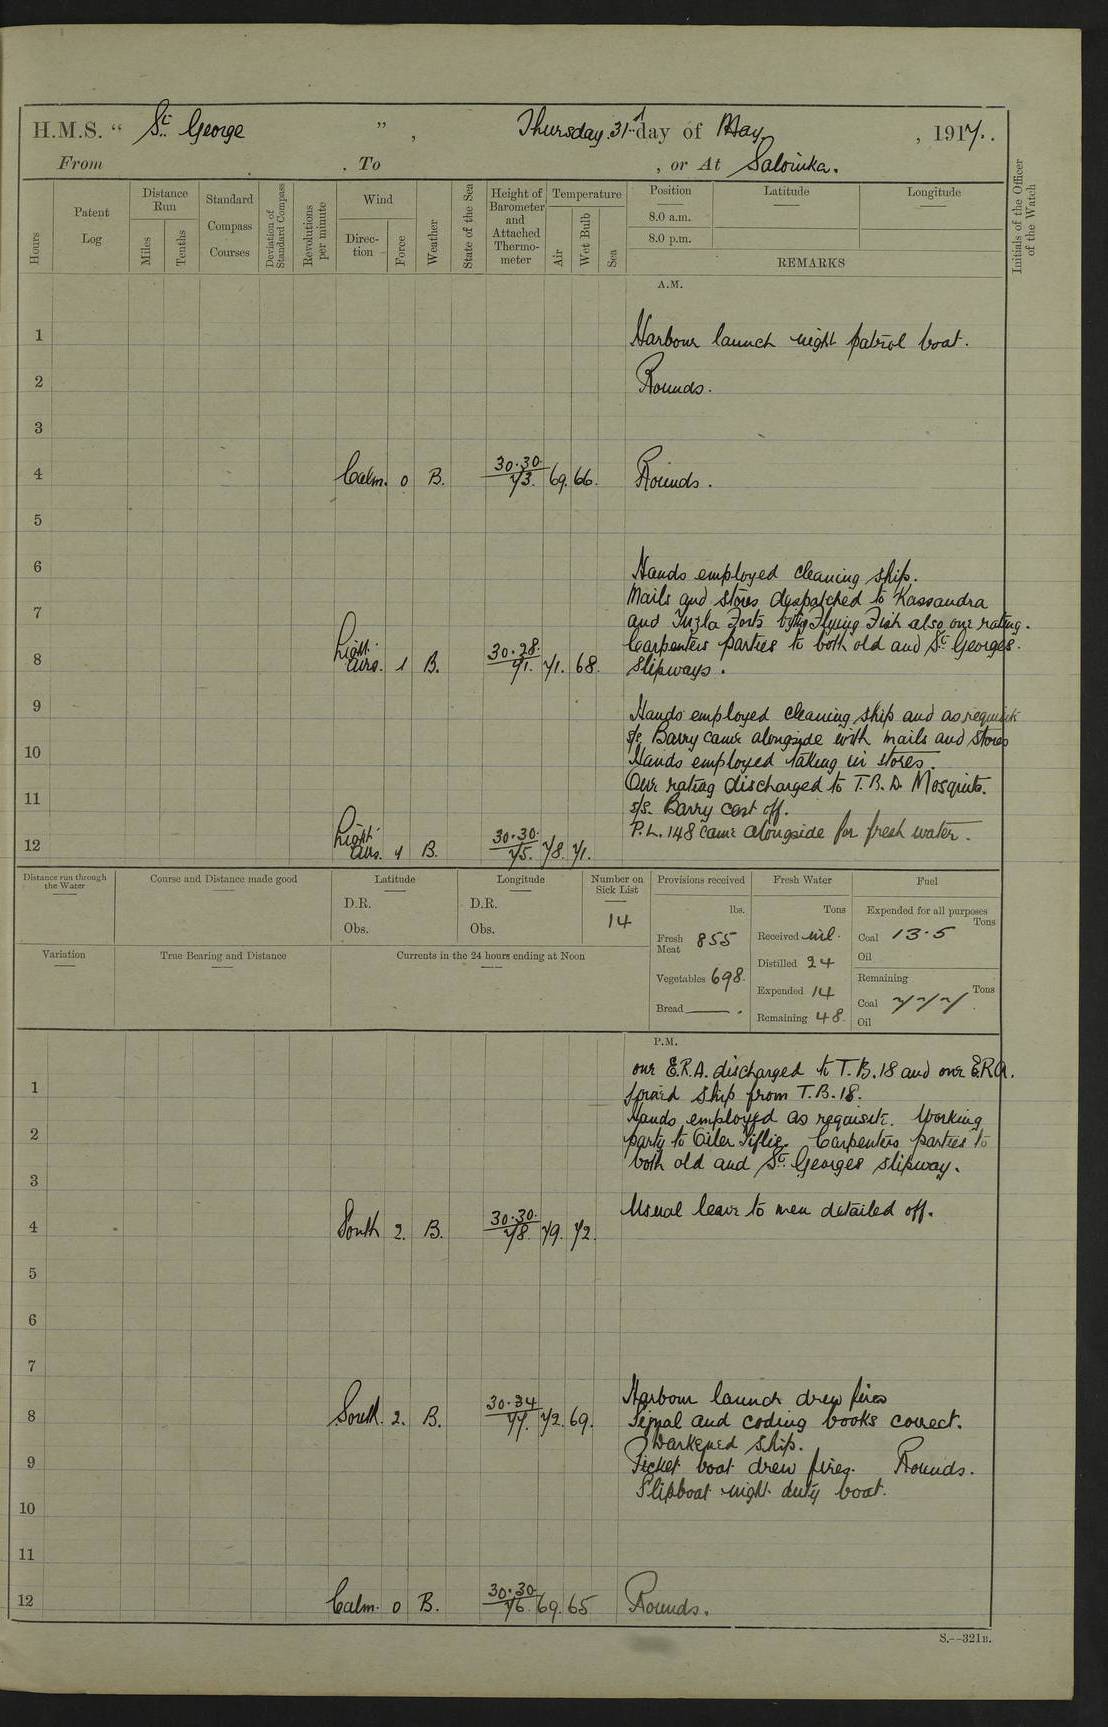 H.M.S. “ St. George ” , Thursday 31st day of May , 1917.
From . To , or At Salonika.
Hours
Patent Log
Distance Run
Miles
Tenths
Standard Compass Courses
Deviation of Standard Compass
Revolutions per minute
Wind
Direction
Force
Weather
State of the Sea
Height of Barometer and Attached Thermometer
Temperature
Air
Wet Bulb
Sea
Position
Latitude
Longitude
8.0 a.m.
8.0 p.m.
REMARKS
Initials of the Officer of the Watch
A.M.
1 Harbour launch night patrol boat.
2 Rounds.
3
4 Calm. 0 B. 30.30. 73. 69. 66. Rounds.
5
6 Hands employed cleaning ship.
Mails and stores dyspatched to Kassandra
7 and Tuzla Forts by Flying Fish also one rating.
Carpenters parties to both old and St. Georges
8 Light airs. 1 B. 30.28. 71. 71. 68. slipways.
9 Hands employed cleaning ship and as requisite
s/s. Barry came alongside with mails and stores
10 Hands employed taking in stores.
One rating discharged to T.B.D. Mosquito.
11 s/s. Barry cast off.
P.L. 148 came alongside for fresh water.
12 Light airs. 1 B. 30.30. 75. 78. 71.
Distance run through the Water
Course and Distance made good
Latitude
D.R.
Obs.
Longitude
D.R.
Obs.
Number on Sick List
14
Provisions received
lbs.
Fresh Meat 855
Vegetables 698.
Bread ——.
Fresh Water
Tons
Received nil.
Distilled 24
Expended 14
Remaining 48.
Fuel
Expended for all purposes
Tons
Coal 13.5
Oil
Remaining
Tons
Coal 777.
Oil
Variation
True Bearing and Distance
Currents in the 24 hours ending at Noon
P.M.
one E.R.A. discharged to T.B.18 and one E.R.A.
1 joined ship from T.B.18.
Hands employed as requisite. Working
2 party to Oiler Tiflis. Carpenters parties to
both old and St. Georges slipway.
3
Usual leave to men detailed off.
4 South 2. B. 30.30. 78. 79. 72.
5
6
7
Harbour launch drew fires
8 South. 2. B. 30.34 77. 72. 69. Signal and coding books correct.
Darkened ship.
9 Picket boat drew fires. Rounds.
Slipboat night duty boat.
10
11
12 Calm. 0 B. 30.30. 76. 69. 65 Rounds.
S.--321B.